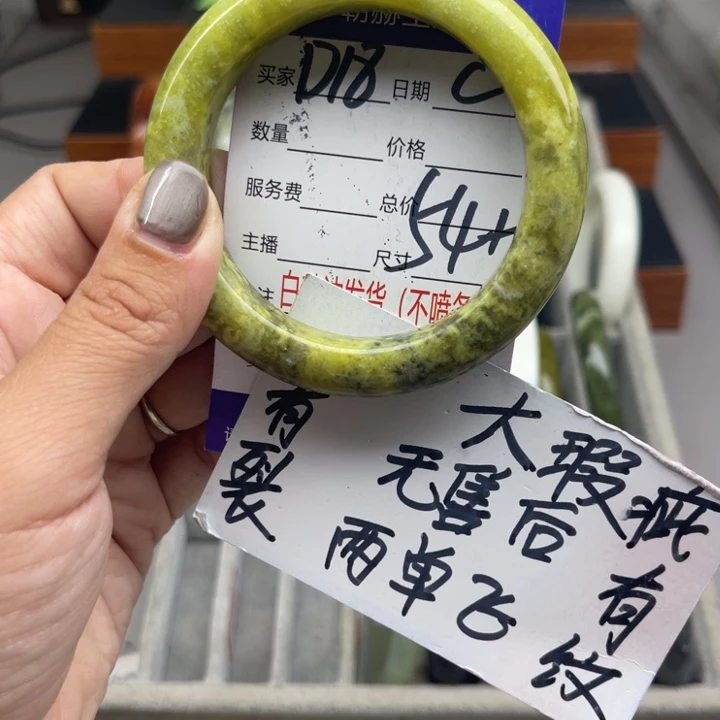 买家 D18 日期
数量 价格
服务费 总价
主播 尺寸 54+
有裂
大瑕疵
无售后
两单飞
有纹